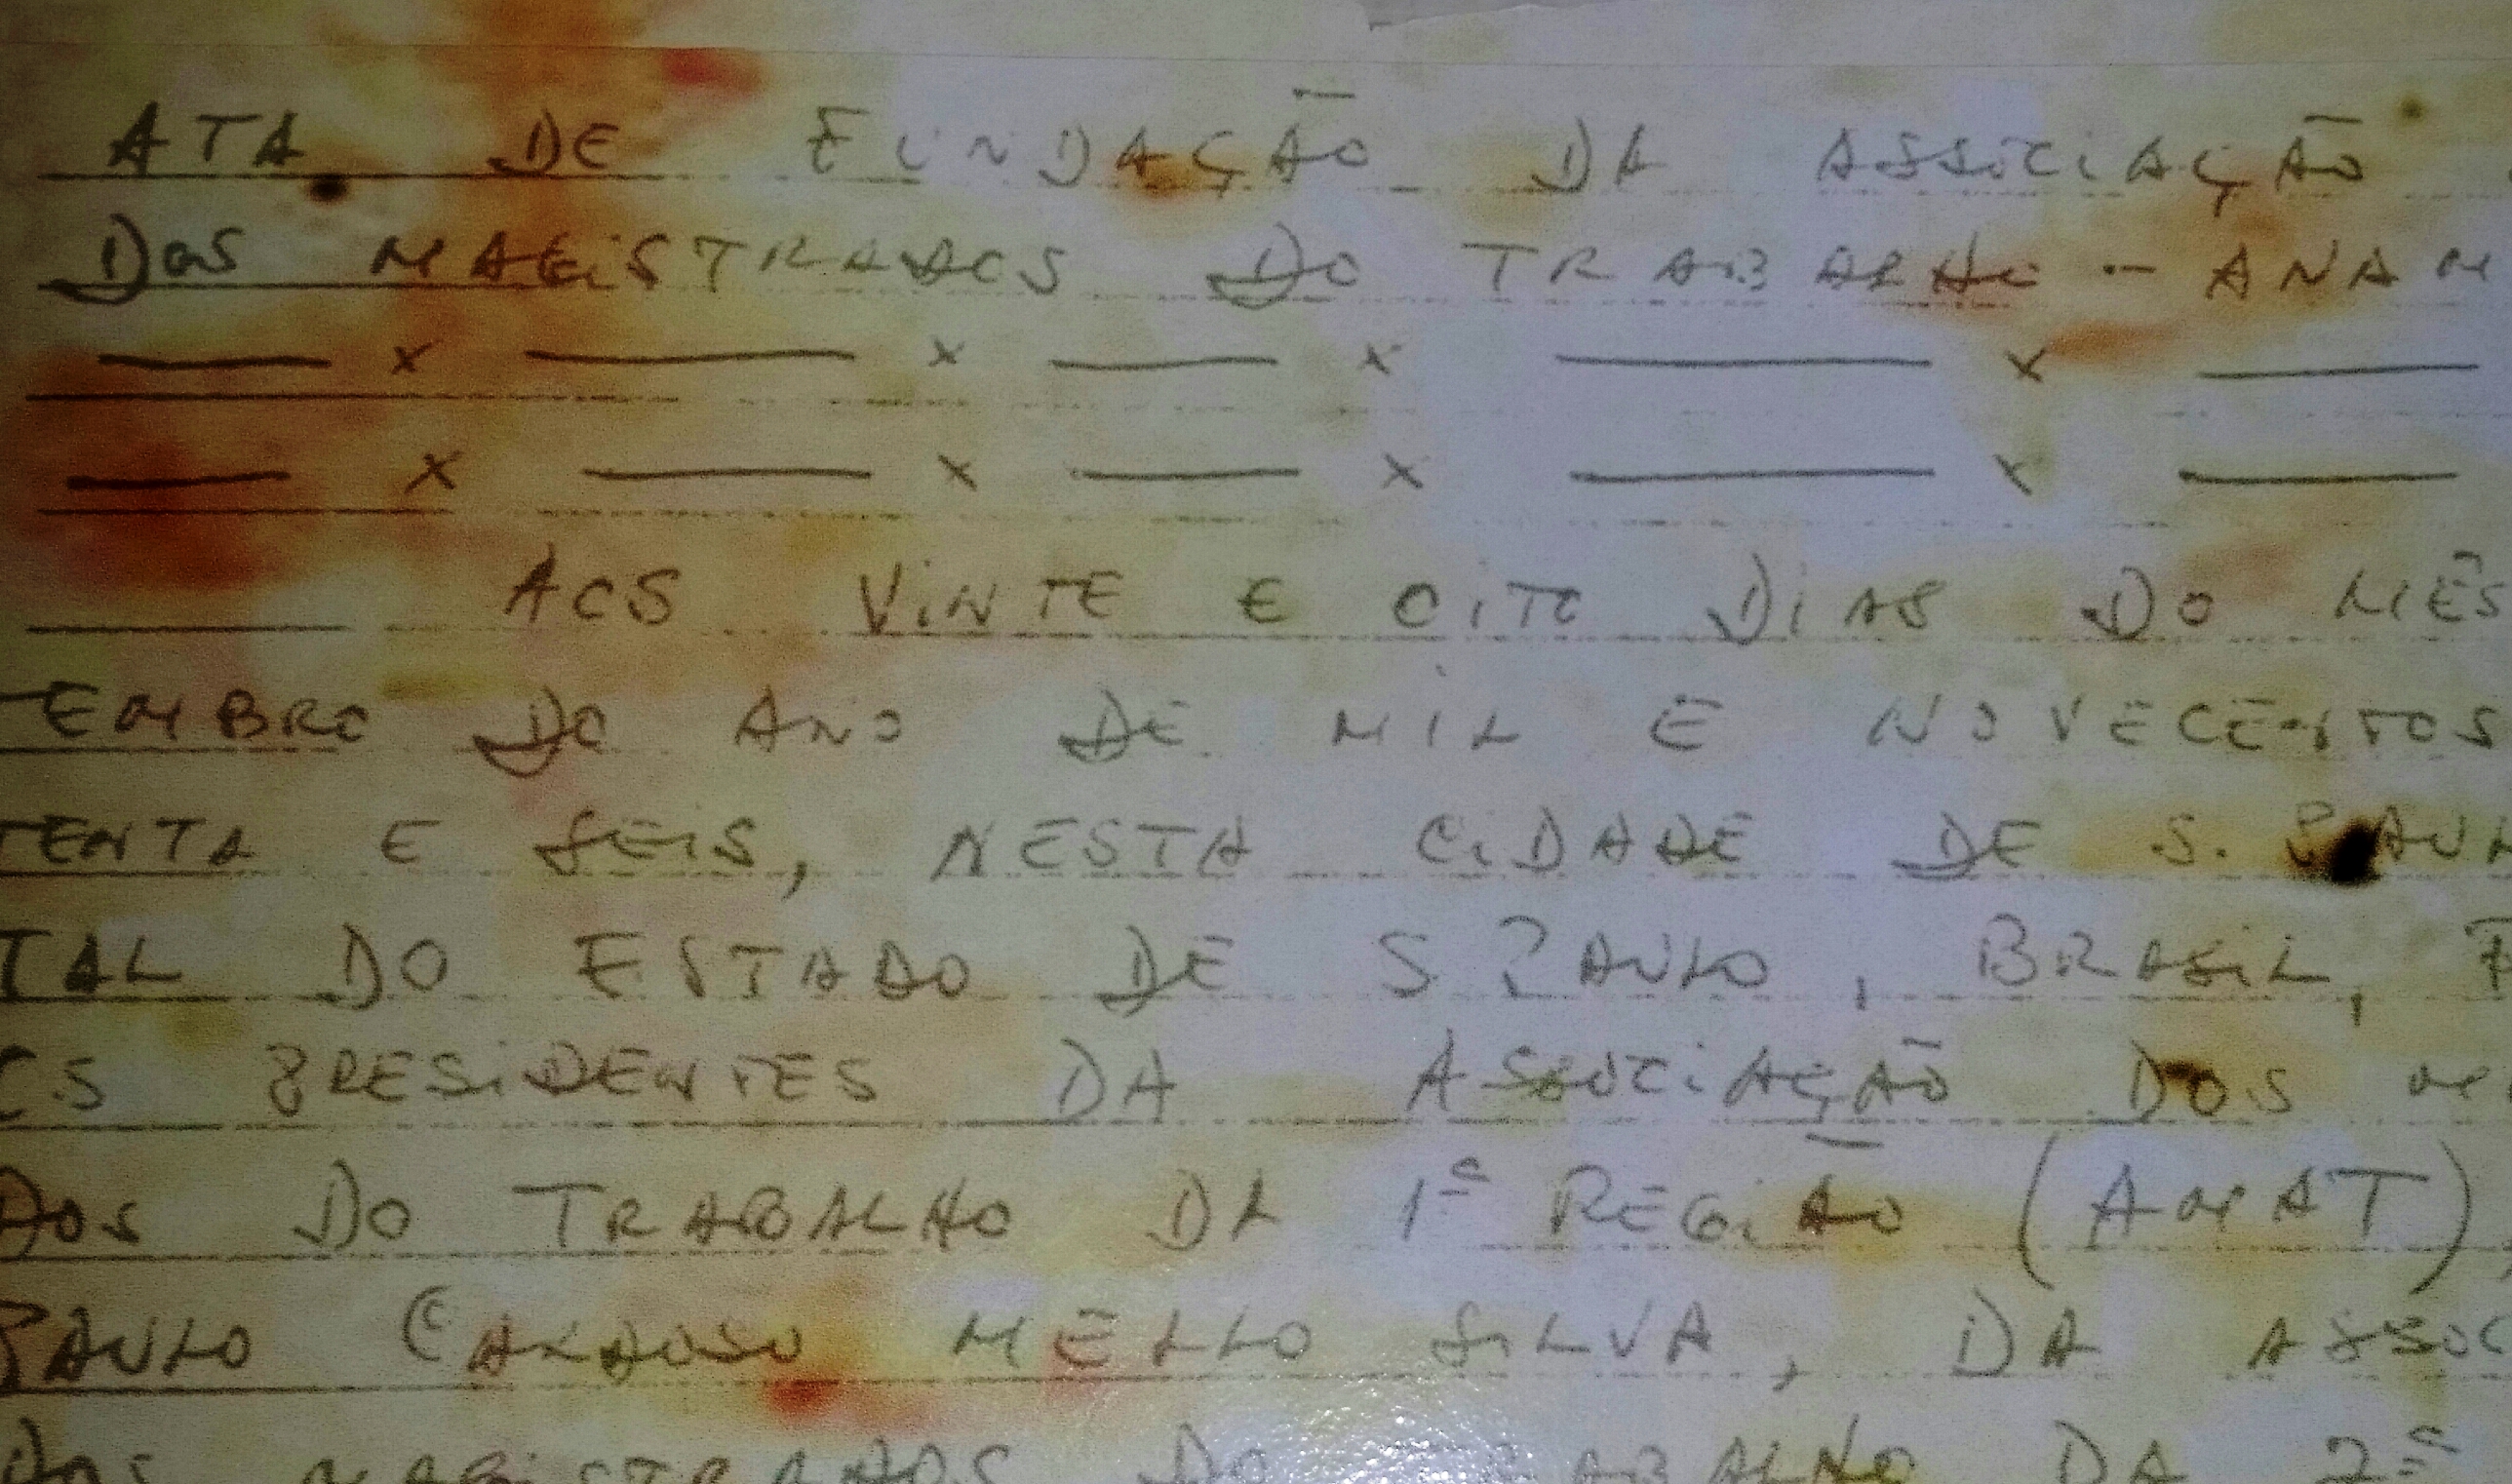 ATA DE FUNDAÇÃO DA ASSOCIAÇÃO
DOS MAGISTRADOS DO TRABALHO - ANAM
— x — x — x — x —
— x — x — x — x —
AOS VINTE E OITO DIAS DO MÊS
TEMBRO DO ANO DE MIL E NOVECENTOS
TENTA E SEIS, NESTA CIDADE DE S. PAUL
TAL DO ESTADO DE S PAULO, BRASIL,
OS PRESIDENTES DA ASSOCIAÇÃO DOS M
DOS DO TRABALHO DA 1ª REGIÃO (AMAT),
PAULO CARDOSO MELLO SILVA, DA ASSOC
DOS MAGISTRADOS DO TRABALHO DA 2ª